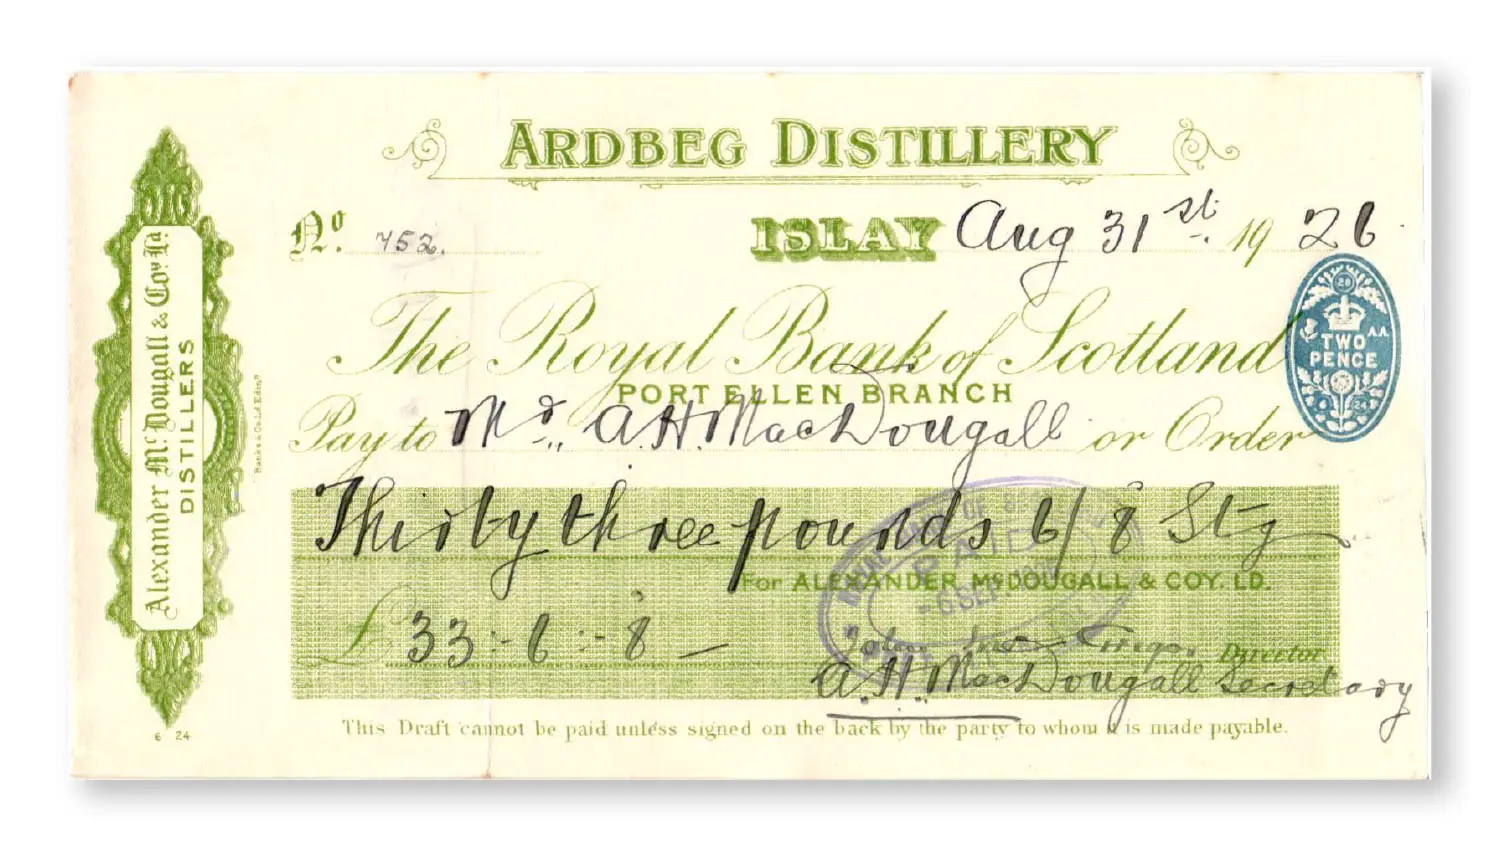 ARDBEG DISTILLERY
No. 752.
ISLAY Aug 31st. 1926
The Royal Bank of Scotland
PORT ELLEN BRANCH
TWO PENCE
A.A.
28
24
Pay to Mr. A.H. MacDougall or Order
Thirty three pounds 6/8 Stg
For ALEXANDER McDOUGALL & COY. LD.
PAID
6 SEP
£ 33:-6:-8 —
John Director
A.H. MacDougall Secretary
This Draft cannot be paid unless signed on the back by the party to whom it is made payable.
Alexander McDougall & Coy Ld.
DISTILLERS
Banks & Co. Ld. Edinr.
6 24